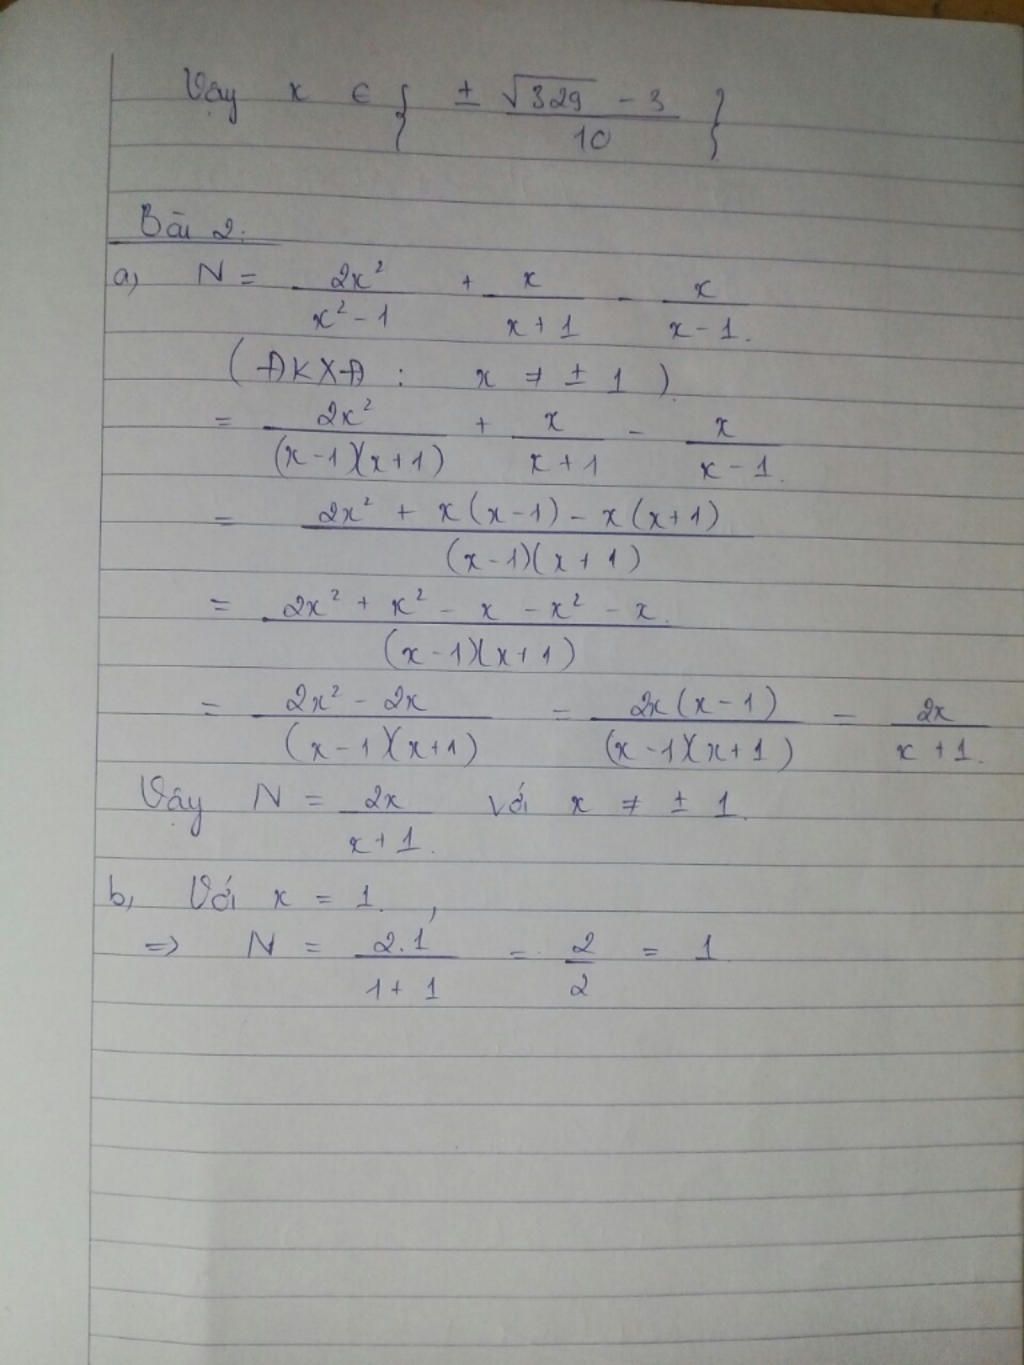 Vậy x ∈ { (± √329 - 3)/10 }
Bài 2.
a, N = 2x²/(x² - 1) + x/(x + 1) - x/(x - 1).
(ĐKXĐ : x ≠ ± 1).
= 2x²/((x - 1)(x + 1)) + x/(x + 1) - x/(x - 1).
= (2x² + x(x - 1) - x(x + 1))/((x - 1)(x + 1))
= (2x² + x² - x - x² - x)/((x - 1)(x + 1))
= (2x² - 2x)/((x - 1)(x + 1)) = (2x(x - 1))/((x - 1)(x + 1)) = 2x/(x + 1).
Vậy N = 2x/(x + 1). với x ≠ ± 1.
b, Với x = 1. ,
=> N = 2.1/(1 + 1) = 2/2 = 1